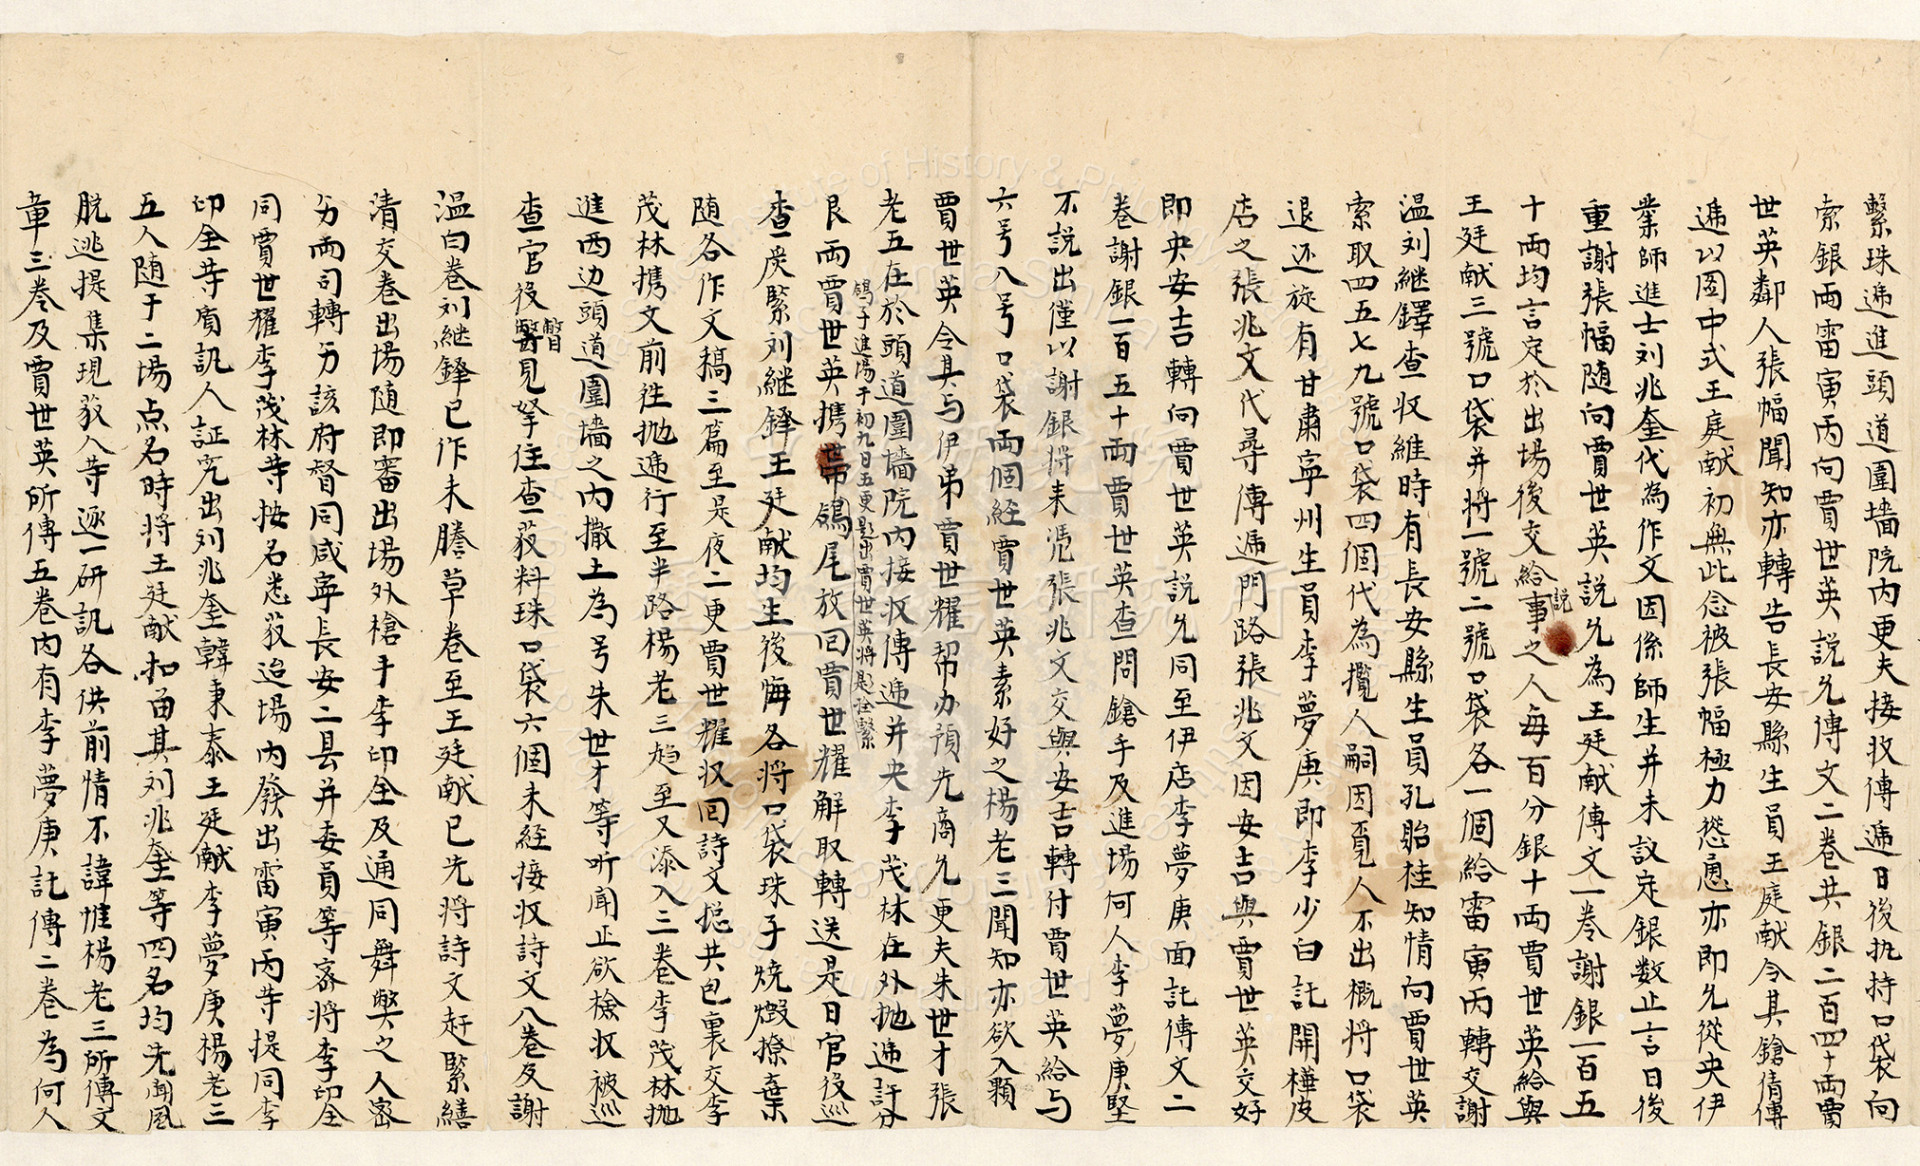 繫珠遞進頭道圍墻院内更夫接收傳遞日後执持口袋向
索銀两雷寅丙向賈世英説允傳文二卷共銀二百四十两賈
世英鄰人張幅聞知亦轉告長安縣生員王庭献令其鎗倩傳
遞以图中式王庭献初無此念被張幅極力慫恿亦即允從央伊
業師進士刘兆奎代為作文因係師生并未议定銀数止言日後
重謝張幅随向賈世英説允為王廷献傳文一卷謝銀一百五
十两均言定於出場後交給説事之人每百分銀十两賈世英給與
王廷献三號口袋并将一號二號口袋各一個給雷寅丙轉交謝
温刘継鐸查収維時有長安縣生員孔貽桂知情向賈世英
索取四五七九號口袋四個代為攬人嗣因覓人不出概将口袋
退还旋有甘肅寧州生員李夢庚即李少白託開樺皮
店之張兆文代尋傳遞門路張兆文因安吉與賈世英交好
即央安吉轉向賈世英説允同至伊店李夢庚面託傳文二
卷謝銀一百五十两賈世英查問鎗手及進場何人李夢庚堅
不説出僅以謝銀将来憑張兆文交與安吉轉付賈世英給与
六号八号口袋两個經賈世英素好之楊老三聞知亦欲入顆
賈世英令其与伊弟賈世耀帮办預先商允更夫朱世才張
老五在於頭道圍墻院内接収傳遞并央李茂林在外抛遞許分
艮两賈世英携带鴿子進場于初九日五更題出賈世英将題註繫鴿尾放回賈世耀解取轉送是日官役巡
查严緊刘継鐸王廷献均生後悔各将口袋珠子焼燬撩棄
随各作文稿三篇至是夜二更賈世耀収回詩文總共包裏交李
茂林携文前徃抛遞行至半路楊老三趋至又添入二卷李茂林抛
進西边頭道圍墻之内撒土為号朱世才等听闻正欲撿収被巡
查官役瞥見拏住查获料珠口袋六個未経接収詩文八卷及謝
温白卷刘継鐸已作未謄草卷至王廷献已先将詩文赶緊繕
清交卷出場随即審出場外槍手李印全及通同舞弊之人密
另两司轉另该府督同咸寧長安二县并委員等密将李印全
同賈世耀李茂林等按名悉获追場内發出雷寅丙等提同李
印全等質訊人証究出刘兆奎韓秉泰王廷献李夢庚楊老三
五人随于二場点名時将王廷献扣留其刘兆奎等四名均先聞風
脱逃提集現获人等逐一研訊各供前情不諱惟楊老三所傳文
章三卷及賈世英所傳五卷内有李夢庚託傳二卷為何人